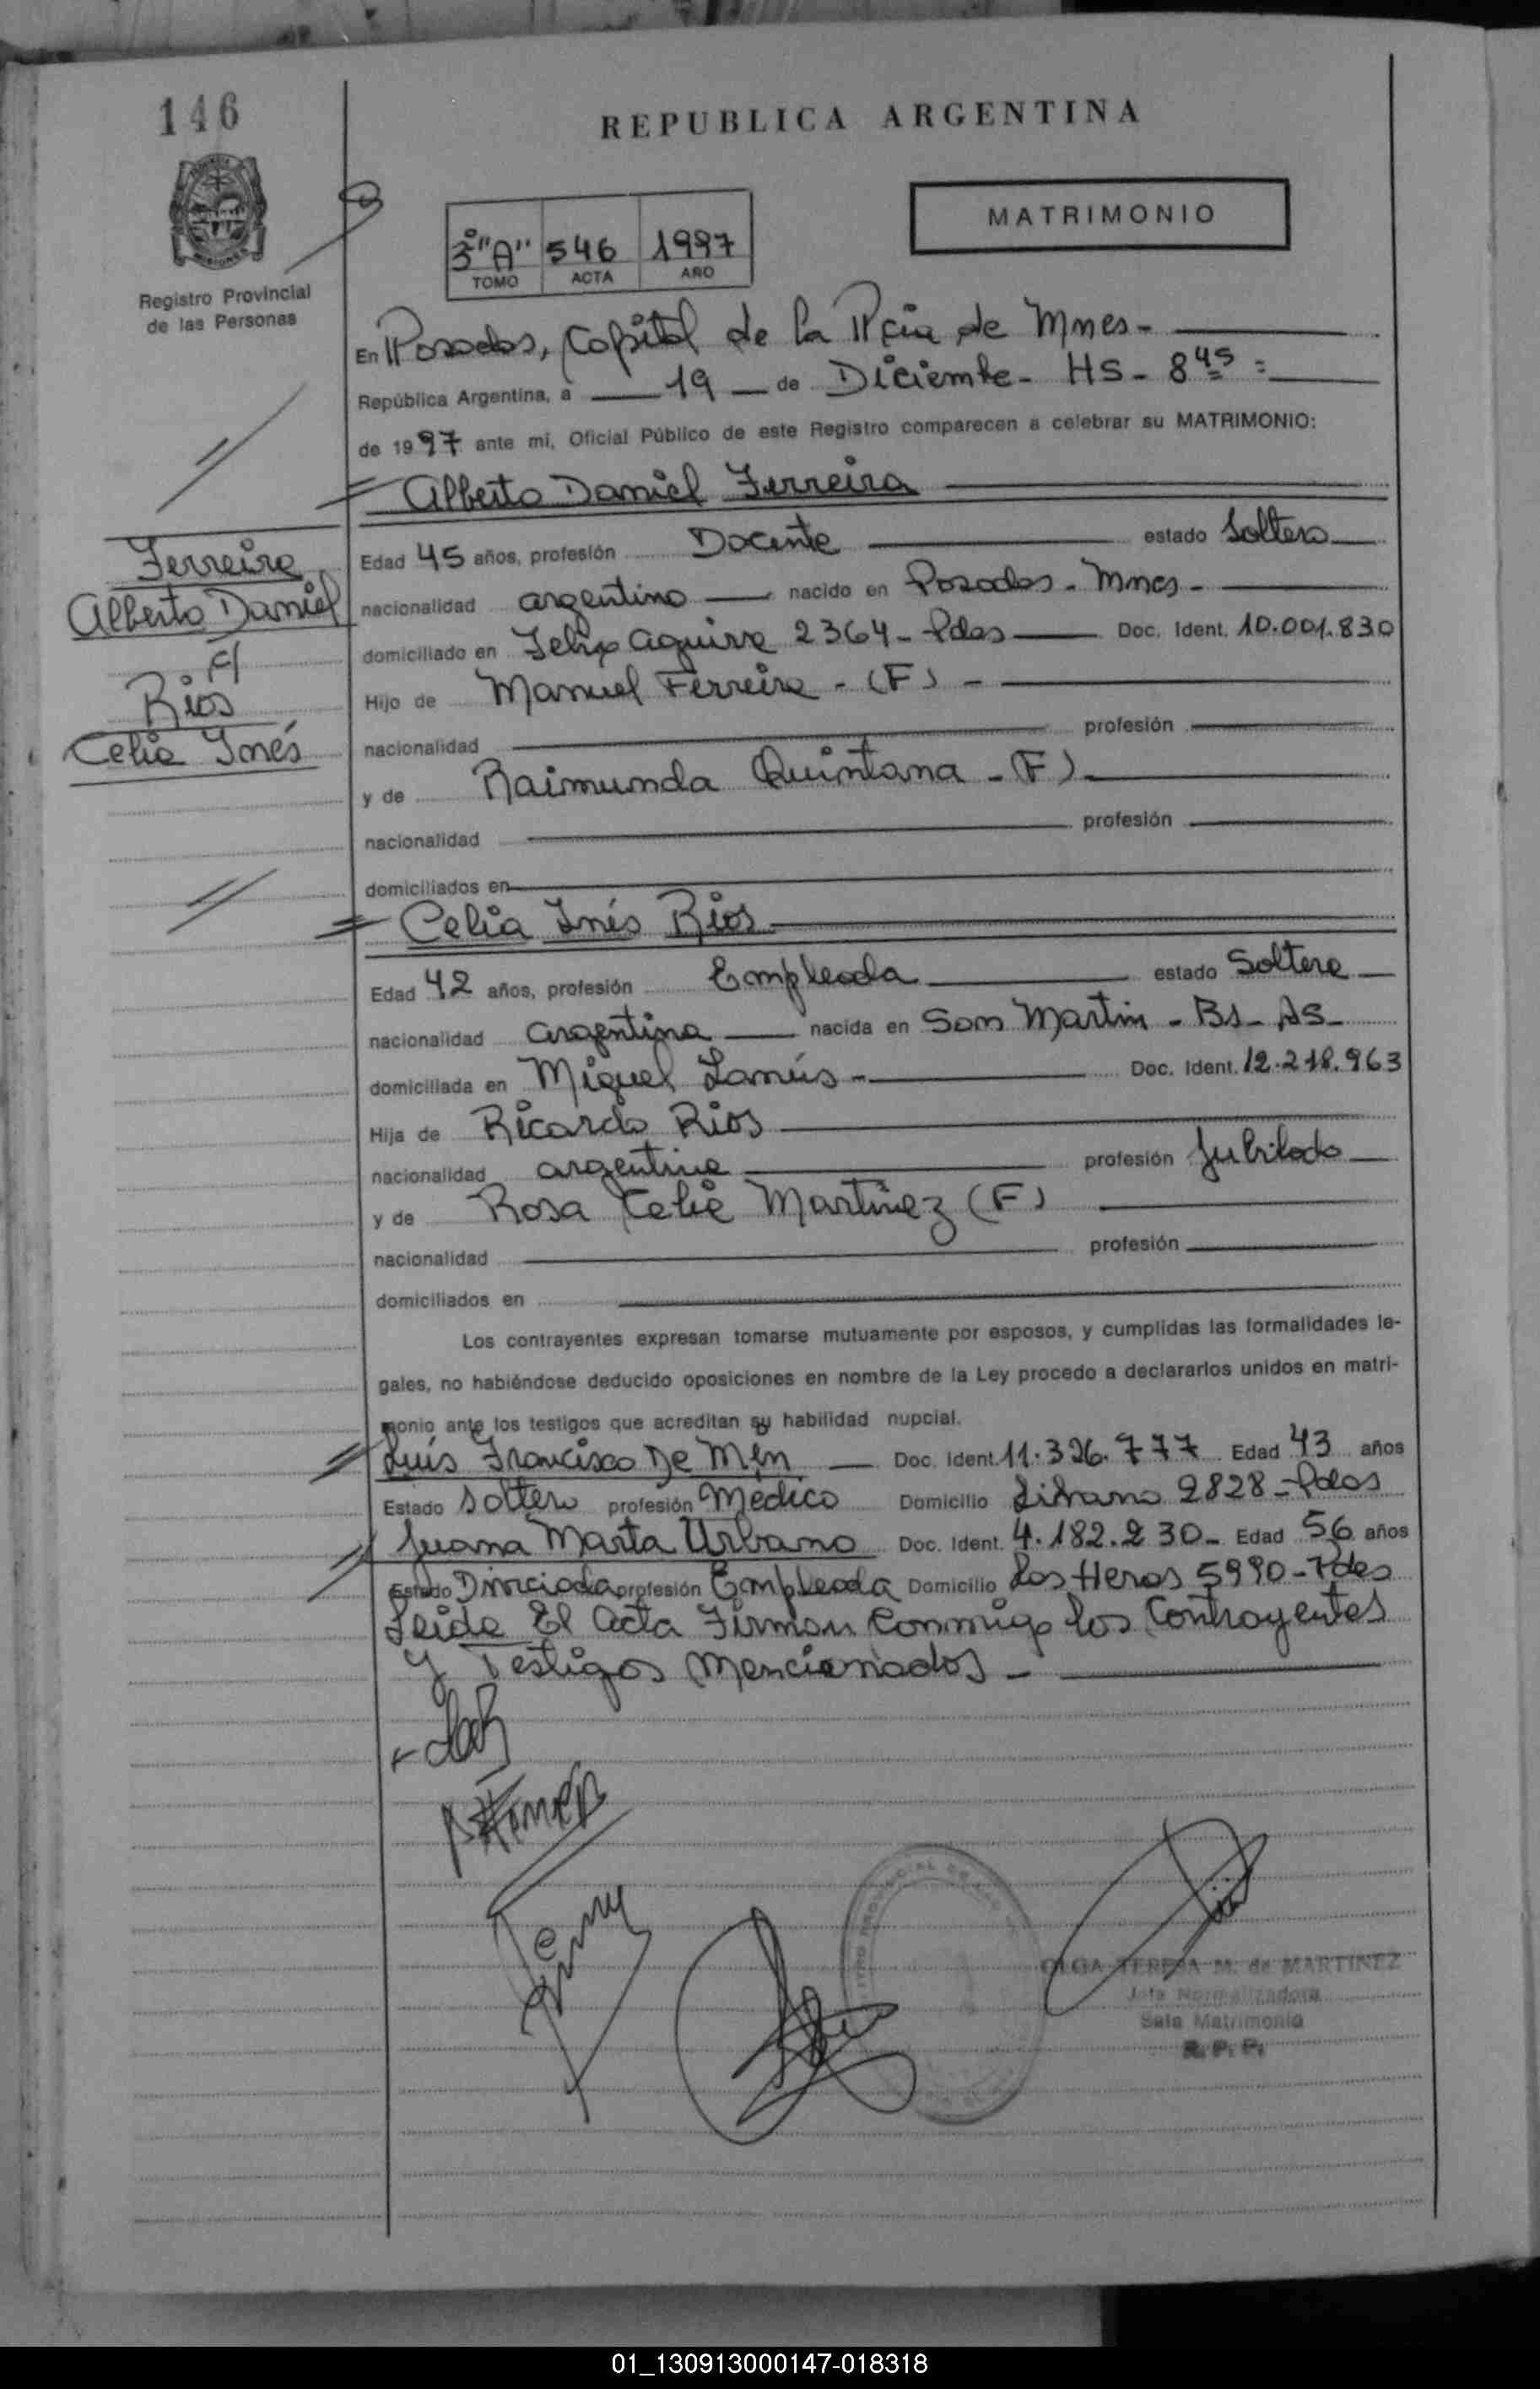 146
REPUBLICA ARGENTINA
MATRIMONIO
3º "A" 546 1997
TOMO ACTA AÑO
Registro Provincial
de las Personas
En Posadas, Capital de la Pcia de Mnes-
República Argentina, a 19 de Diciembre - HS - 8 45 =
de 1997 ante mi, Oficial Público de este Registro comparecen a celebrar su MATRIMONIO:
Alberto Daniel Ferreira
Ferreira
Alberto Daniel
c/
Rios
Celia Inés
Edad 45 años, profesión Docente estado Soltero
nacionalidad argentino nacido en Posadas - Mnes -
domiciliado en Felix Aguirre 2364 - Pdas Doc. Ident. 10.001.830
Hijo de Manuel Ferreira - (F) -
nacionalidad profesión
y de Raimunda Quintana - (F)
nacionalidad profesión
domiciliados en
Celia Inés Rios
Edad 42 años, profesión Empleada estado Soltera
nacionalidad argentina nacida en San Martin - Bs - As -
domiciliada en Miguel Lanús - Doc. Ident. 12.218.963
Hija de Ricardo Rios
nacionalidad argentina profesión Jubilado
y de Rosa Celia Martinez (F)
nacionalidad profesión
domiciliados en
Los contrayentes expresan tomarse mutuamente por esposos, y cumplidas las formalidades le-
gales, no habiéndose deducido oposiciones en nombre de la Ley procedo a declararlos unidos en matri-
monio ante los testigos que acreditan su habilidad nupcial.
Luis Francisco De Men Doc. Ident. 11.326.777 Edad 43 años
Estado Soltero profesión Médico Domicilio Librano 2828 - Pdas
Juana Marta Urbano Doc. Ident. 4.182.230 - Edad 56 años
Estado Divorciada profesión Empleada Domicilio Las Heras 5990 - Pdas
Leida El Acta Firman Conmigo los Contrayentes
y Testigos Mencionados -
OLGA TERESA M. de MARTINEZ
Jefa Normalizadora
Sala Matrimonio
R. P. P.
01_130913000147-018318